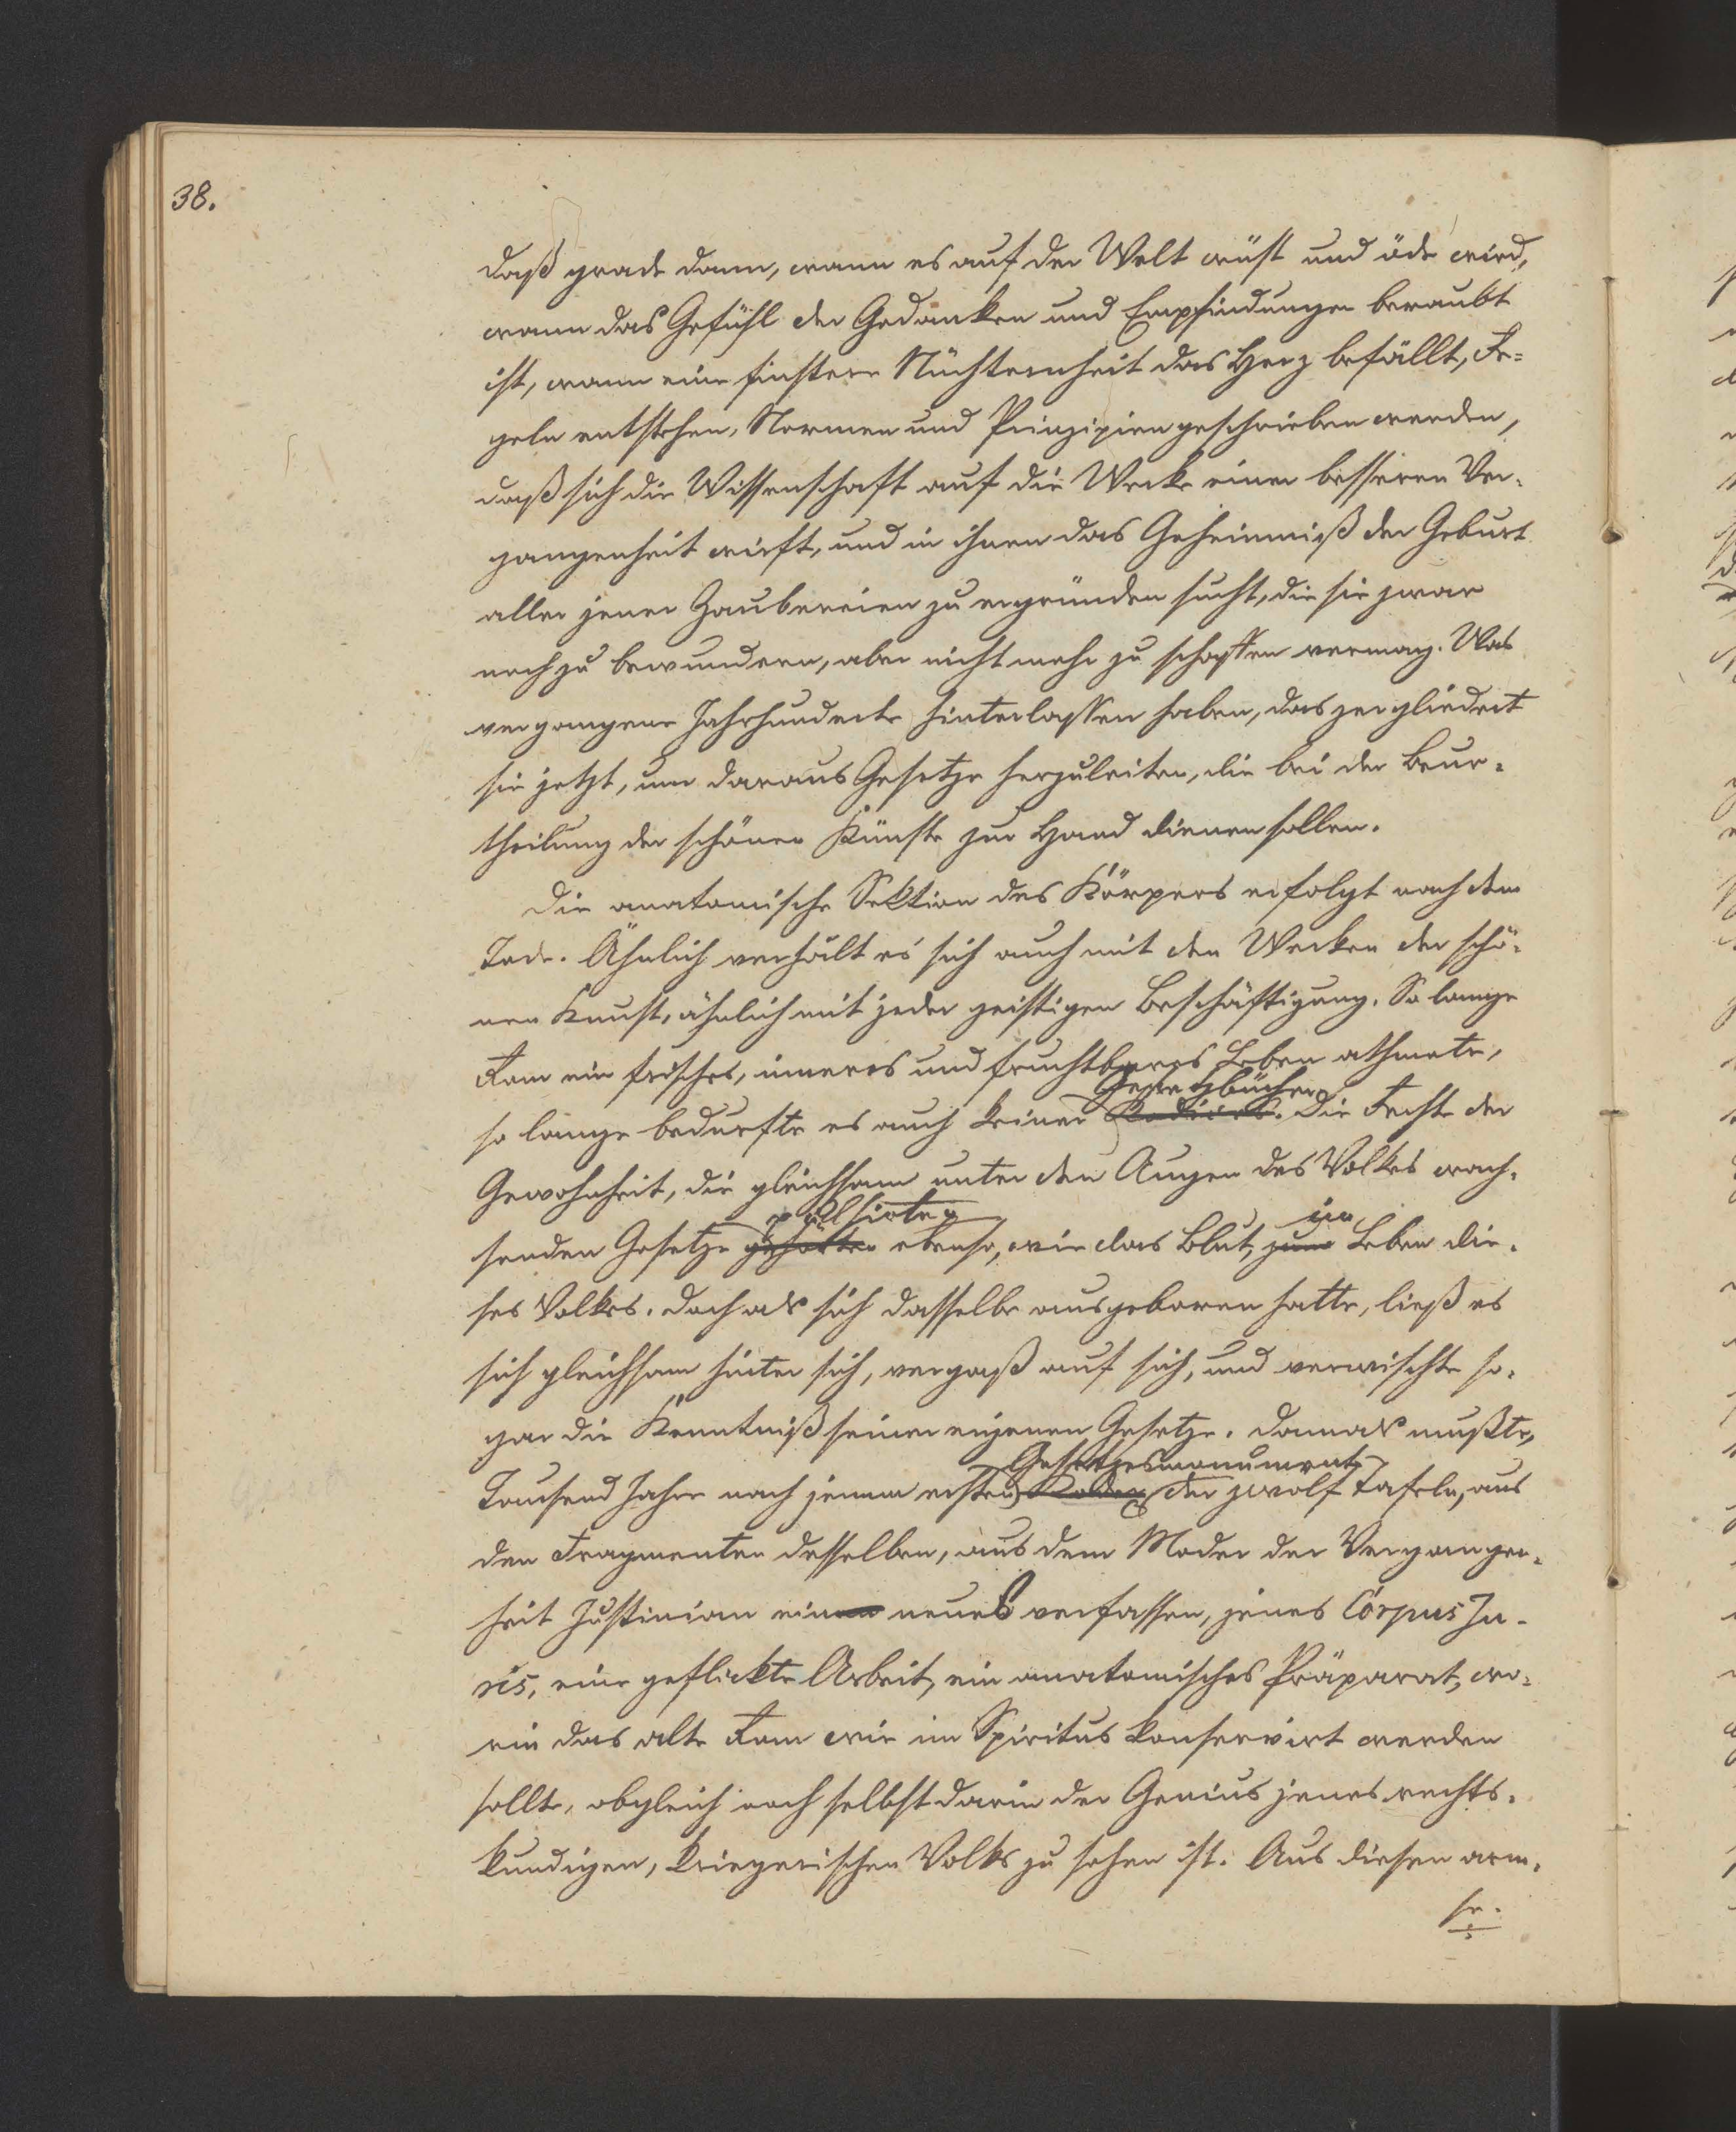 38.
daß grade dann, wann es auf der Welt wüst und öde wird,
wann das Gefühl der Gedanken und Empfindungen beraubt
ist, wann eine finstere Nüchternheit das Herz befällt, Re=
geln entstehen, Normen und Prinzipien geschrieben werden,
daß sich die Wissenschaft auf die Werke einer besseren Ver-
gangenheit wirft, und in ihnen das Geheimniß der Geburt
aller jener Zaubereien zu ergründen sucht, die sie zwar
noch zu bewundern, aber nicht mehr zu schaffen vermag. Was
vergangene Jahrhunderte hinterlassen haben, das zergliedert
sie jetzt, um daraus Gesetze herzuleiten, die bei der Beur-
theilung der schönen Künste zur Hand dienen sollen.
Die anatomische Sektion des Körpers erfolgt nach dem
Tode. Ähnlich verhält es sich auch mit den Werken der schö-
nen Kunst, ähnlich mit jeder geistigen Beschäftigung. So lange
Rom ein frisches, inneres und fruchtbares Leben athmete,
Gesetzbücher
so lange bedurfte es auch keiner Kodices. Die Rechte der
Gewohnheit, die gleichsam unter den Augen des Volkes wach-
pulsirten
in
senden Gesetze gehörten ebenso, wie das Blut, zum Leben die-
ses Volkes. Doch als sich dasselbe ausgeboren hatte, ließ es
sich gleichsam hinter sich, vergaß auf sich, und verwischte so-
gar die Kenntniß seiner eigenen Gesetze. Damals mußte,
Gesetzesmonument
Tausend Jahre nach jenem ersten Kodex der zwolf Tafeln, aus
den Fragmenten desselben, aus dem Moder der Vergangen-
heit Justinian einen neues verfassen, jenes Corpus Ju-
ris, eine geflickte Arbeit, ein anatomisches Präparat, wo-
rin das alte Rom wie im Spiritus konservirt werden
sollte, obgleich noch selbst darin der Genius jenes rechts-
kundigen, kriegerischen Volks zu sehen ist. Aus diesen arm-
se-